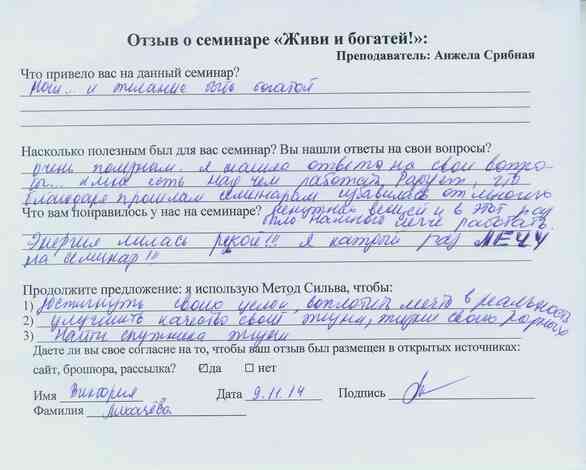 Отзыв о семинаре «Живи и богатей!»:
Преподаватель: Анжела Срибная
Что привело вас на данный семинар?
и желание быть богатой
Насколько полезным был для вас семинар? Вы нашли ответы на свои вопросы?
очень полезным. я нашла ответы на свои вопро-
сы... и мне есть над чем работать. Радует, что
благодаря прошлым семинарам избавилась от многих
Что вам понравилось у нас на семинаре? ненужных вещей и в этот раз
было намного легче работать.
Энергия лилась рекой!!! я каждый раз ЛЕЧУ
на семинар!!!
Продолжите предложение: я использую Метод Сильва, чтобы:
1) достигнуть своих целей, воплотить мечты в реальность
2) улучшить качество своей жизни, жизни своих родных
3) найти спутника жизни
Даете ли вы свое согласие на то, чтобы ваш отзыв был размещен в открытых источниках:
сайт, брошюра, рассылка? ☑да ☐ нет
Имя Виктория Дата 9.11.14 Подпись
Фамилия Лихачёва